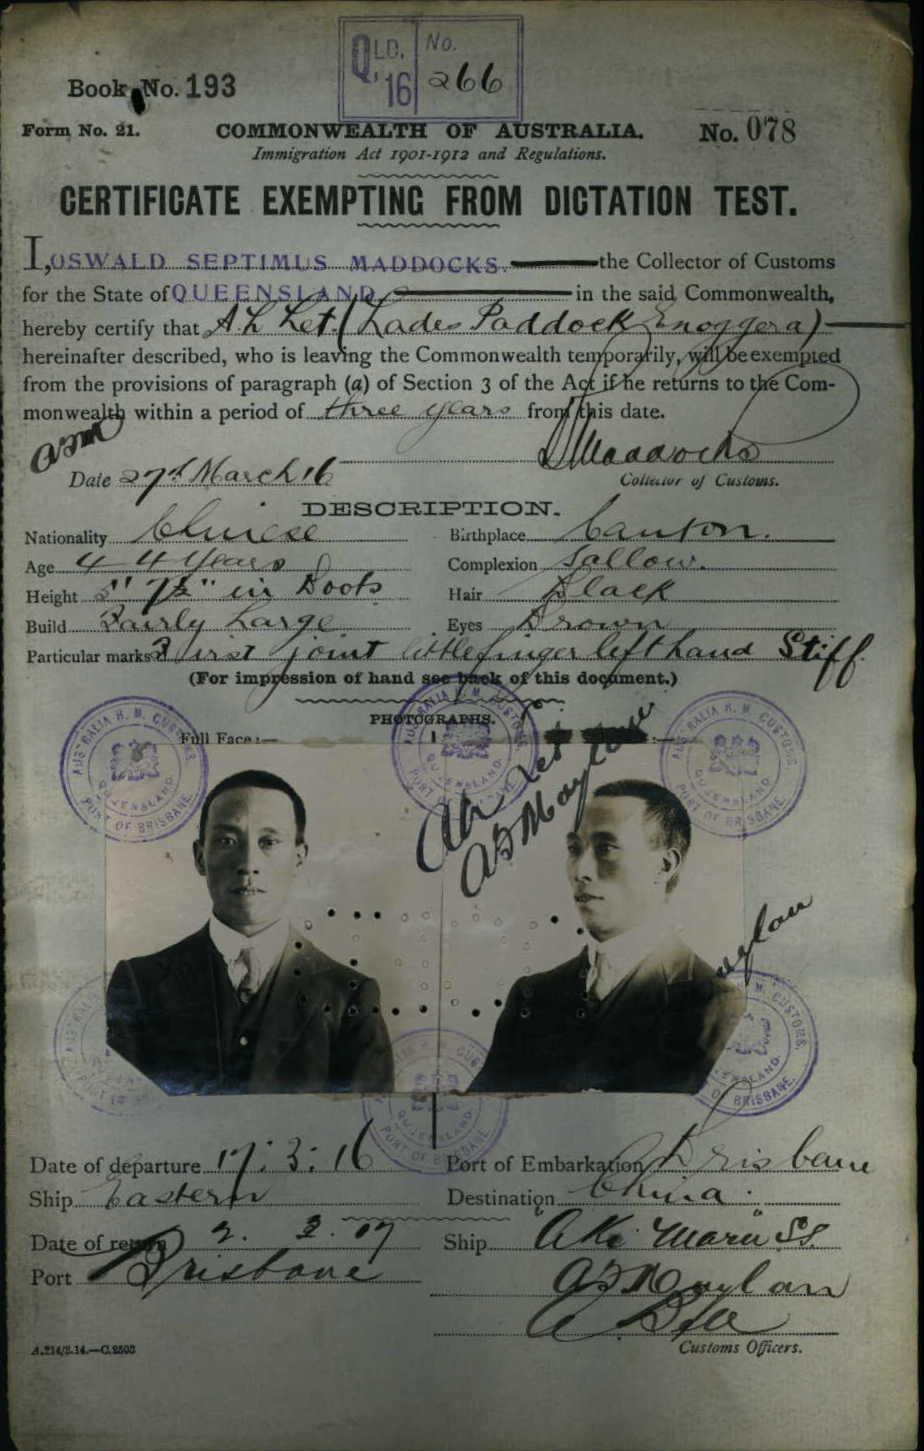 QLD. No.
16 266
Book No. 193
Form No. 21.
COMMONWEALTH OF AUSTRALIA.
No. 078
Immigration Act 1901-1912 and Regulations.
CERTIFICATE EXEMPTING FROM DICTATION TEST.
I, OSWALD SEPTIMUS MADDOCKS. the Collector of Customs
for the State of QUEENSLAND in the said Commonwealth,
hereby certify that Ah Let. (Lades Paddock Enoggera)
hereinafter described, who is leaving the Commonwealth temporarily, will be exempted
from the provisions of paragraph (a) of Section 3 of the Act if he returns to the Com-
monwealth within a period of three years from this date.
Maddocks
Date 27th March 16
Collector of Customs.
DESCRIPTION.
Nationality Chinese
Birthplace Canton.
Age 44 years
Complexion Sallow.
Height 5" 7½" in Boots
Hair Black
Build Fairly Large
Eyes Brown
Particular marks First joint little finger left hand Stiff.
(For impression of hand see back of this document.)
PHOTOGRAPHS.
Full Face:—
Ah Let
Moylan
AUSTRALIA H. M. CUSTOMS
QUEENSLAND
PORT OF BRISBANE
AUSTRALIA H. M. CUSTOMS
QUEENSLAND
PORT OF BRISBANE
AUSTRALIA H. M. CUSTOMS
QUEENSLAND
PORT OF BRISBANE
Date of departure 17: 3: 16
Port of Embarkation Brisbane
Ship Eastern
Destination China.
Date of return 2. 3. 17
Ship "Aki Maru" SS.
Port Brisbane
Moylan
A.214/3.14.—C.2503
Customs Officers.